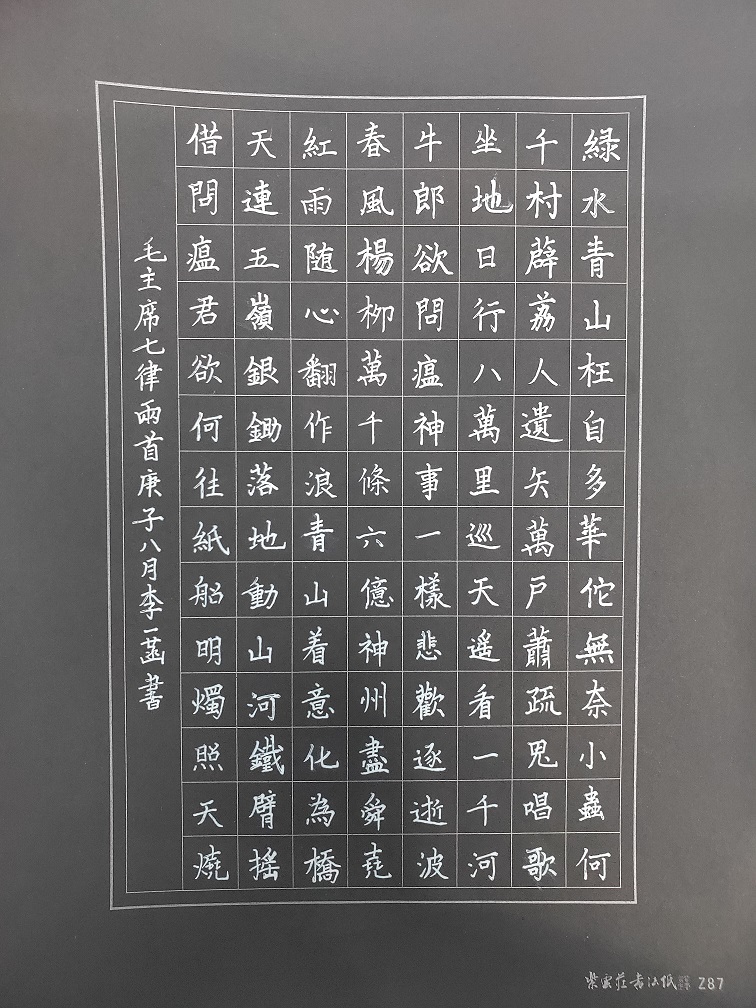 綠水青山枉自多華佗無奈小蟲何
千村薜荔人遺矢萬戶蕭疏鬼唱歌
坐地日行八萬里巡天遥看一千河
牛郎欲問瘟神事一樣悲歡逐逝波
春風楊柳萬千條六億神州盡舜堯
紅雨随心翻作浪青山着意化為橋
天連五嶺銀鋤落地動山河鐵臂摇
借問瘟君欲何往紙船明燭照天燒
毛主席七律兩首庚子八月李一菡書
紫雲莊書法紙 Z87